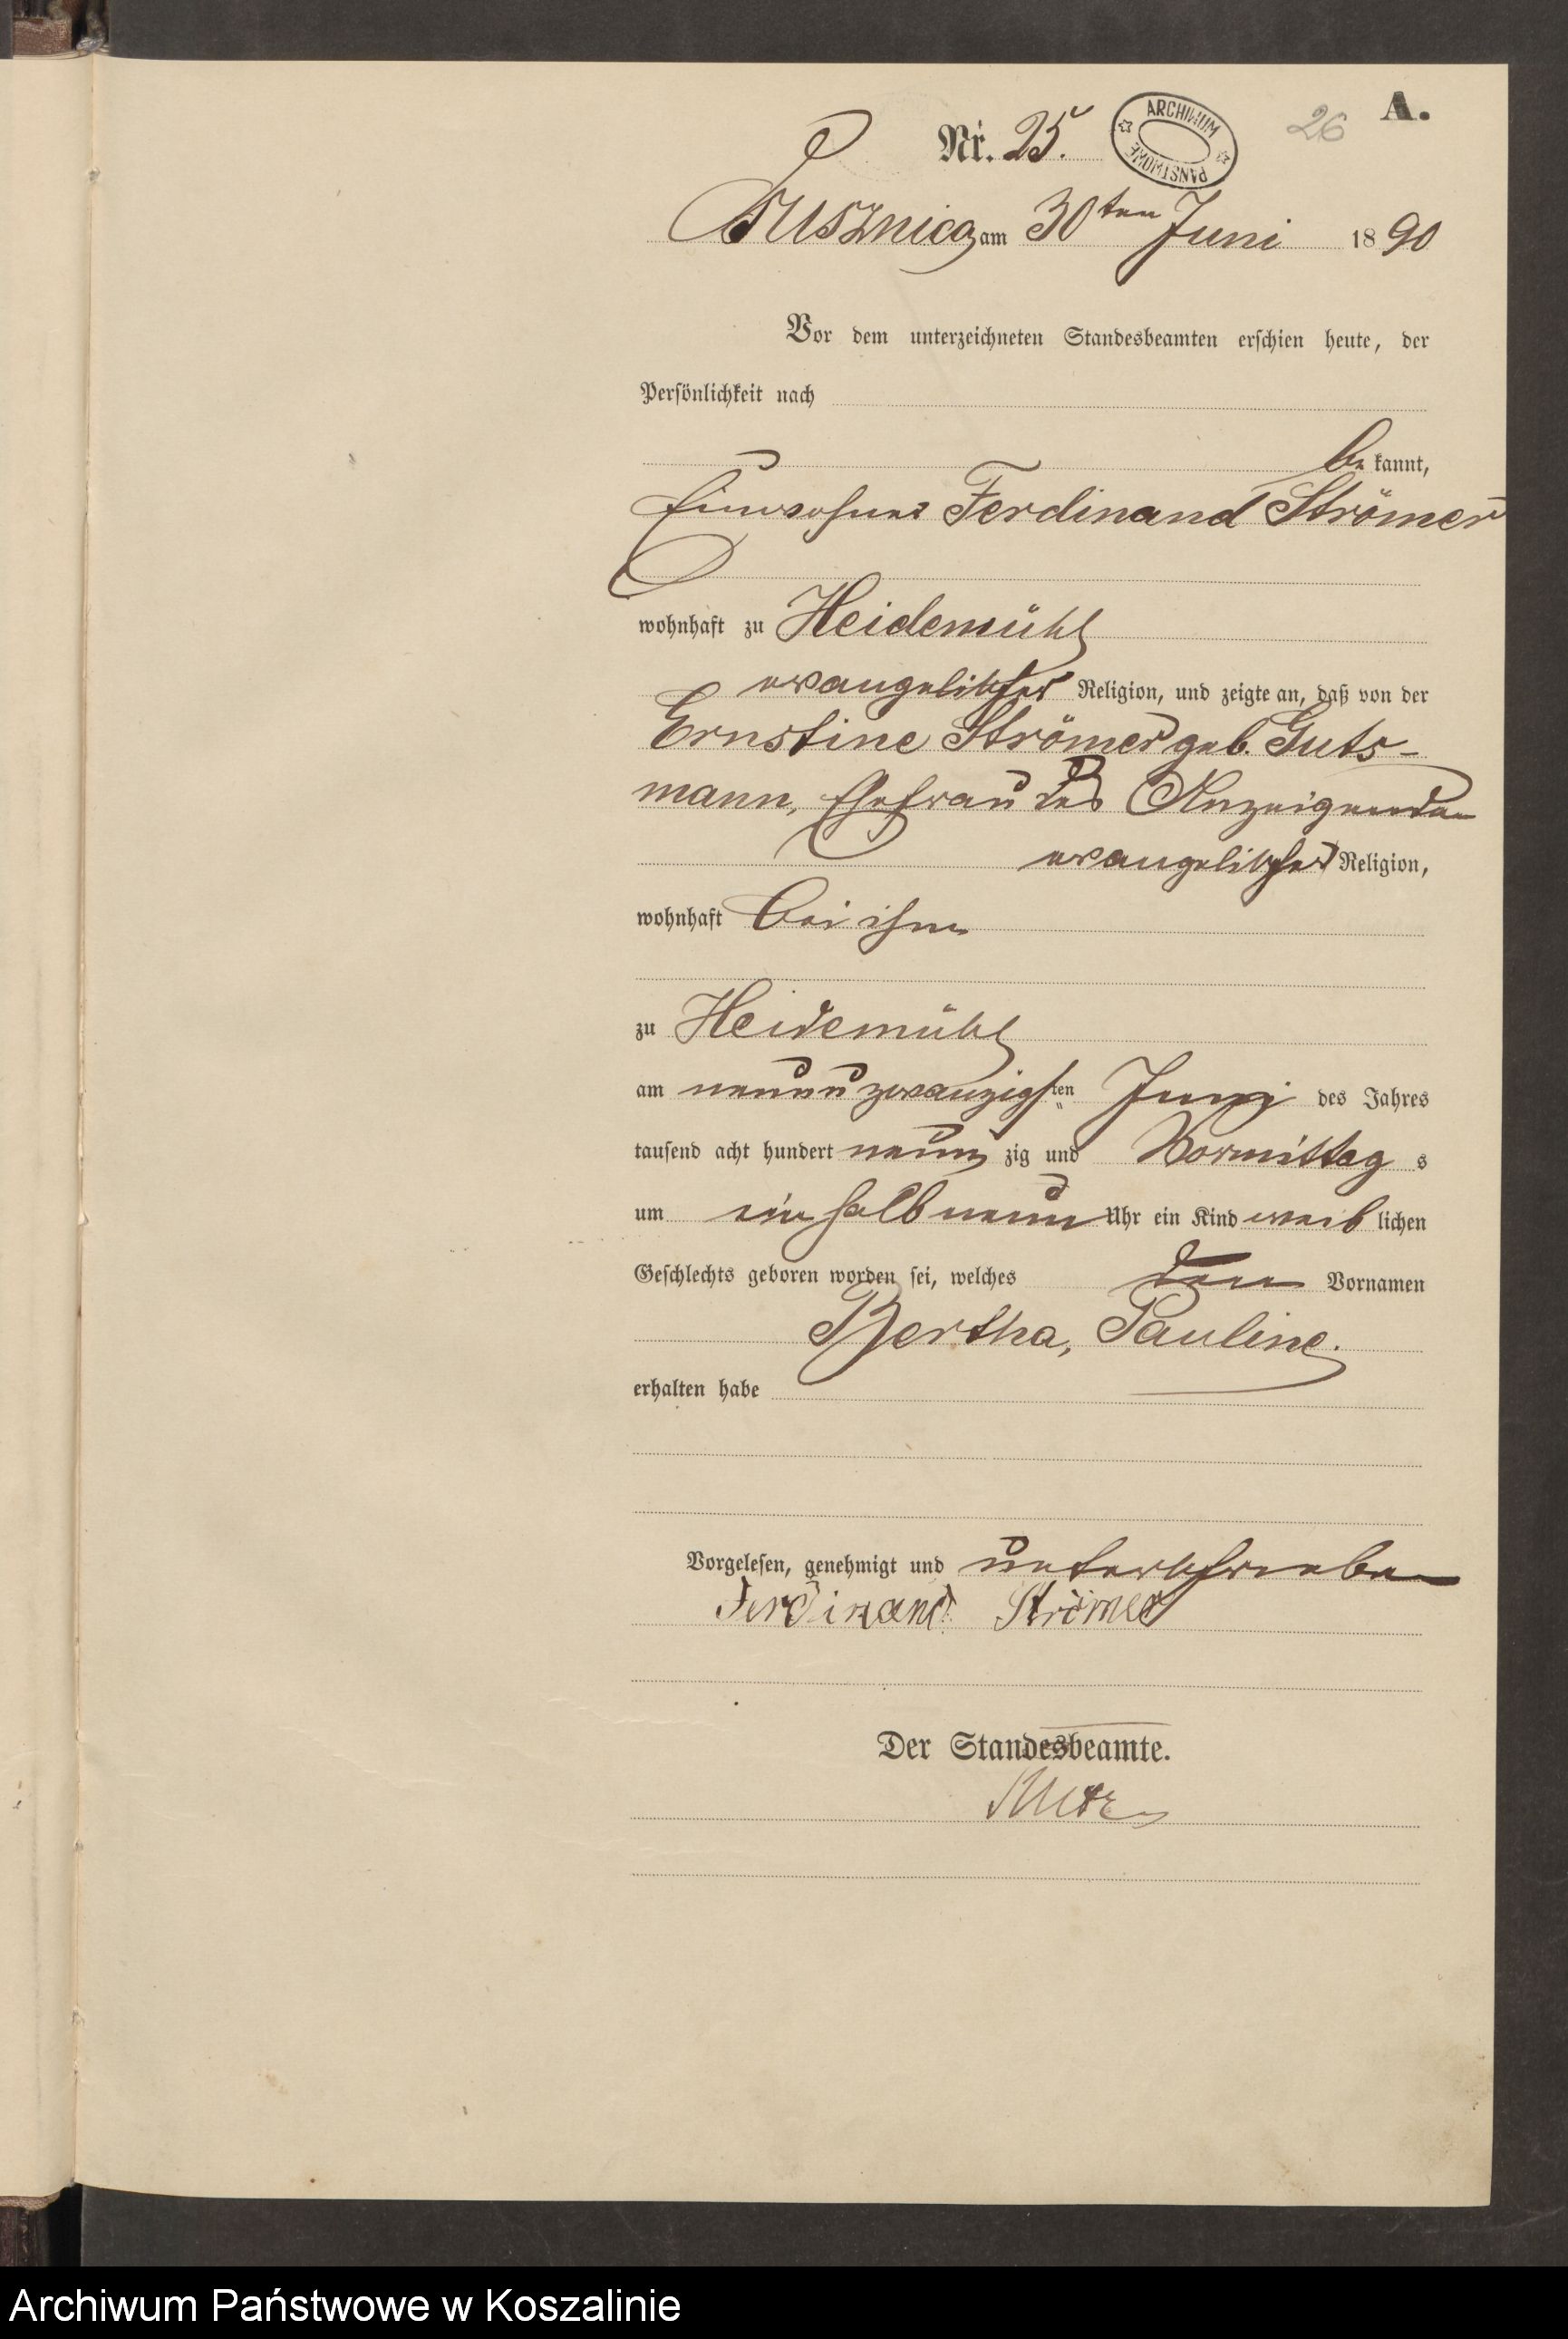 A.
26
Nr. 25.
ARCHIWUM PAŃSTWOWE
am 30ten Juni 1890
Vor dem unterzeichneten Standesbeamten erschien heute, der
Persönlichkeit nach
be kannt,
Einwohner Ferdinand Strömer
wohnhaft zu Heidemühl
evangelischer Religion, und zeigte an, daß von der
Ernstine Strömer geb. Guts-
mann, Ehefrau des Anzeigenden
evangelischer Religion,
wohnhaft bei ihm
zu Heidemühl
am neunundzwanzigsten Juni des Jahres
tausend acht hundert neun zig und Vormittag s
um ein halb neun Uhr ein Kind weib lichen
Geschlechts geboren worden sei, welches den Vornamen
Bertha, Pauline.
erhalten habe
Vorgelesen, genehmigt und unterschrieben
Ferdinand Strömer
Der Standesbeamte.
Archiwum Państwowe w Koszalinie